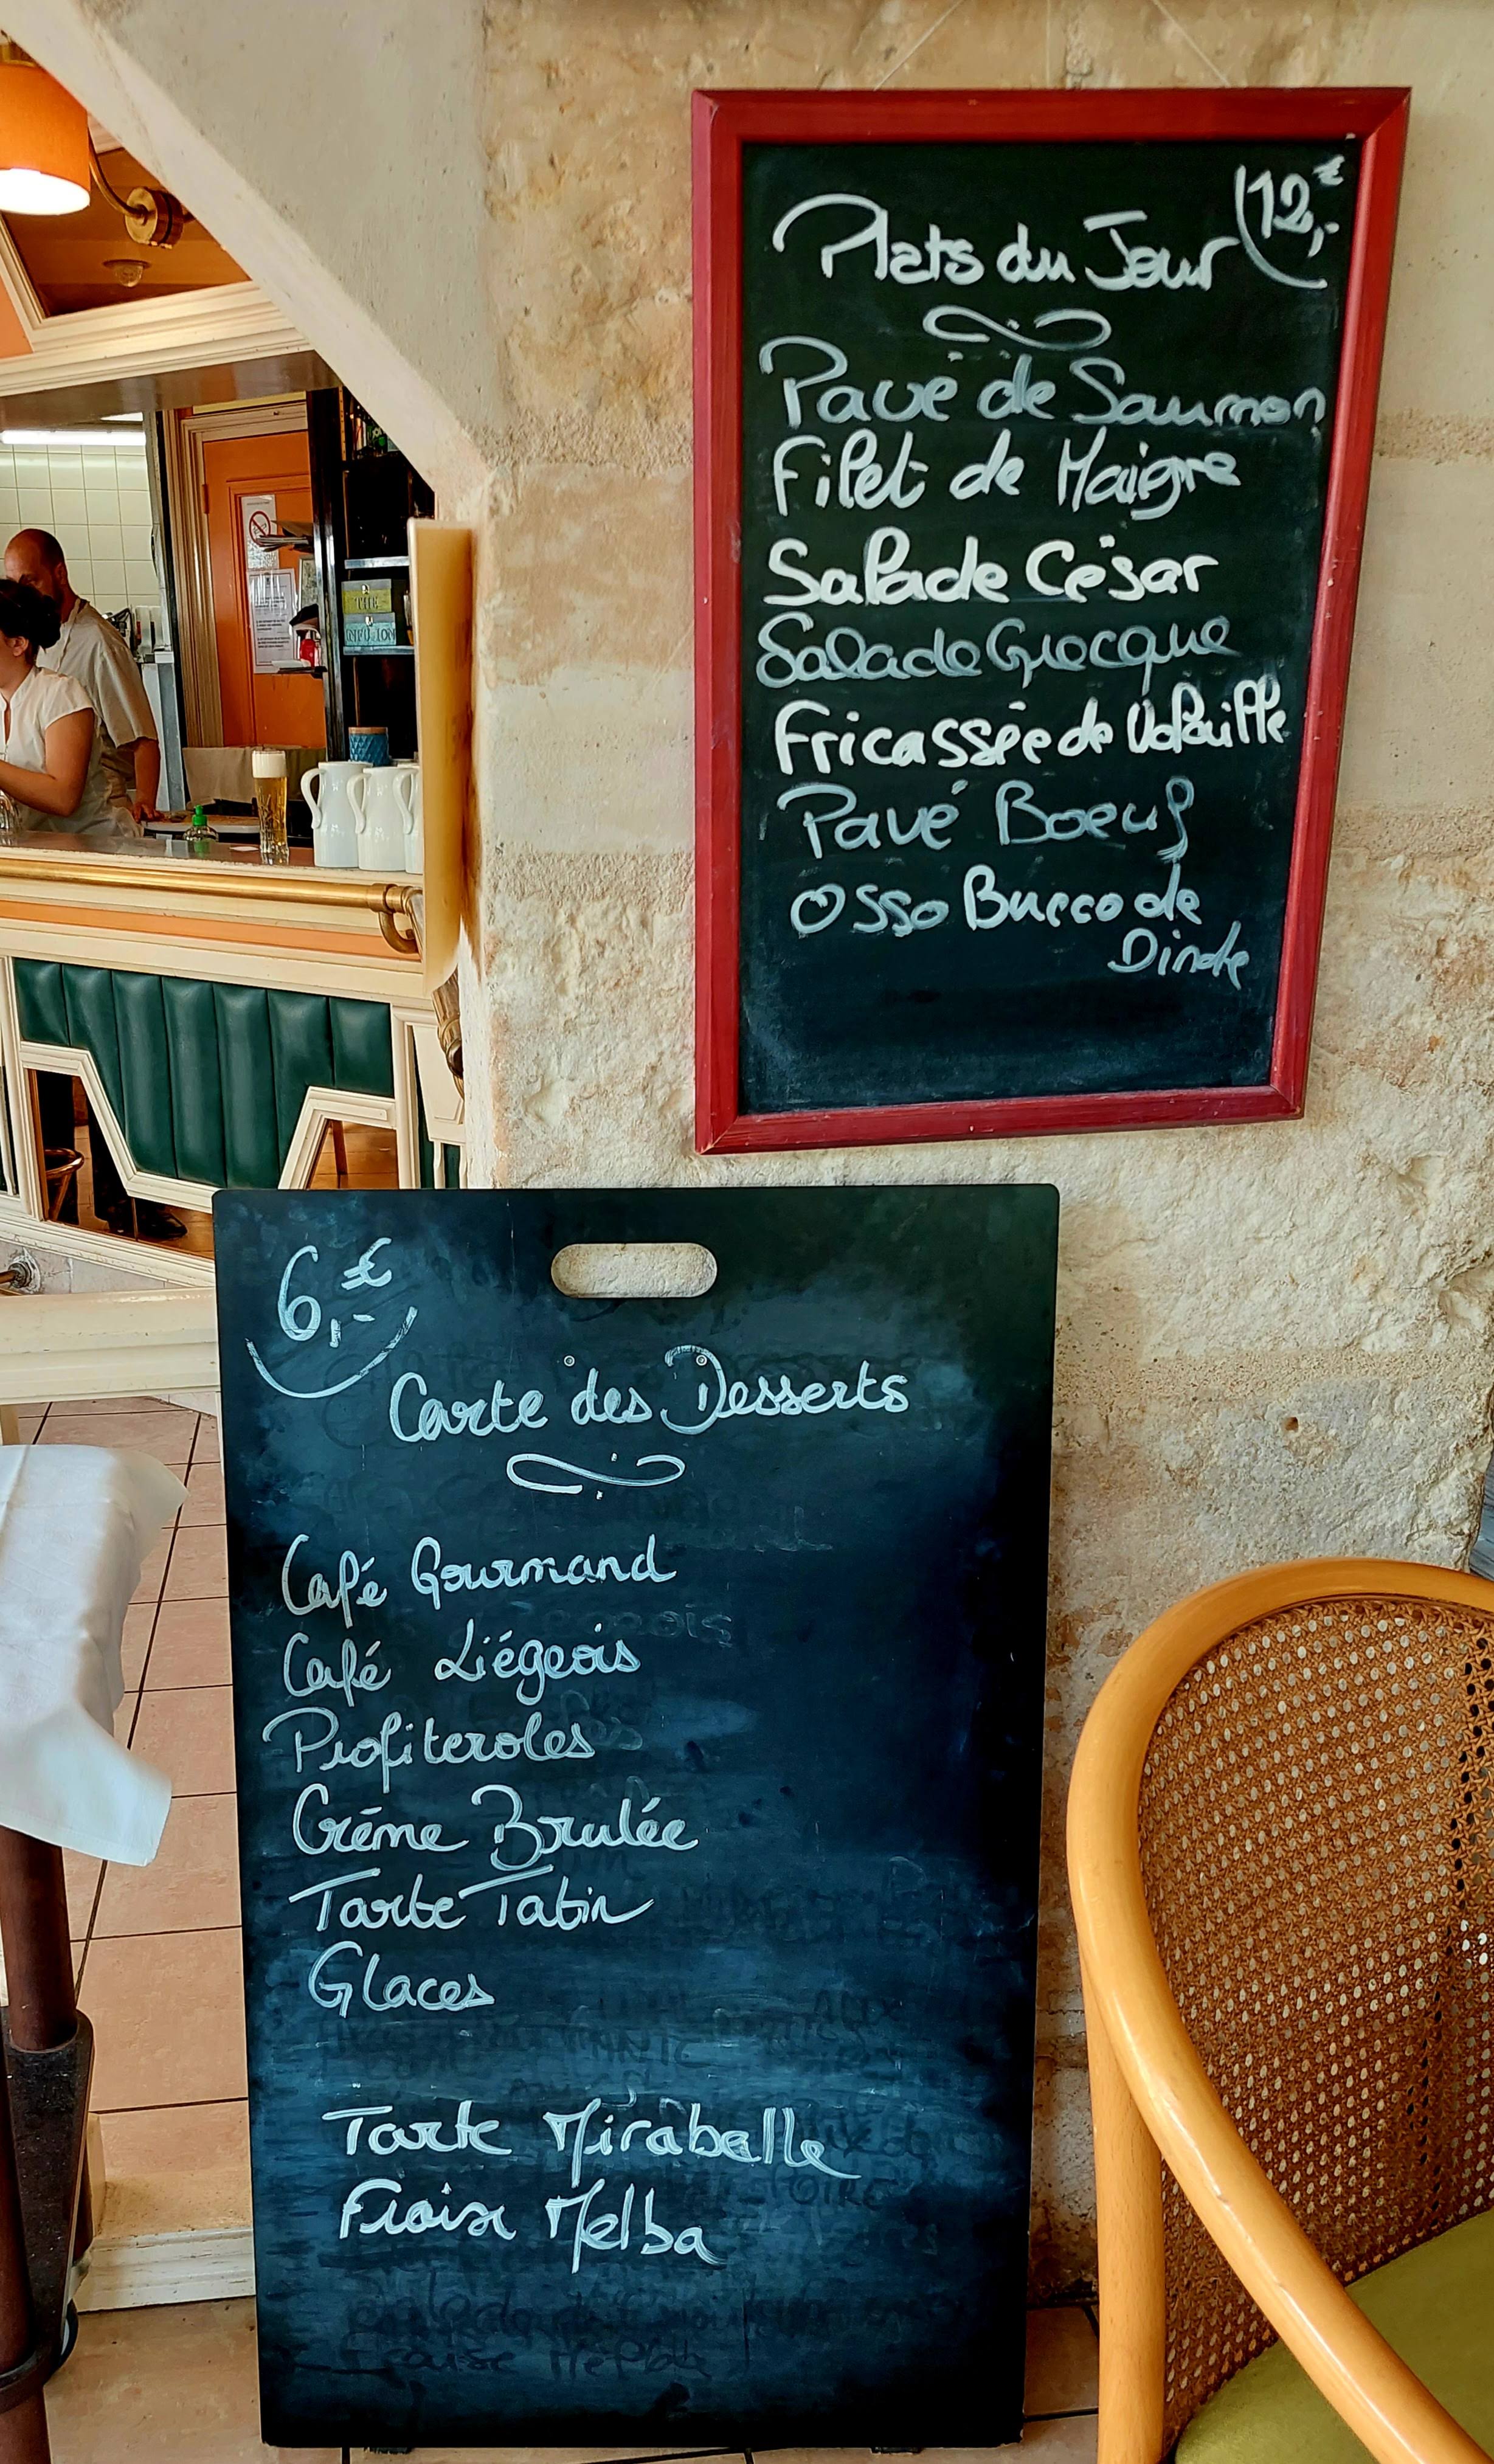 12,-€
Plats du Jour
Pavé de Saumon
Filet de Maigre
Salade César
Salade Grecque
Fricassée de Volaille
Pavé Boeuf
Osso Bucco de
Dinde
THÉ
INFUSION
6,-€
Carte des Desserts
Café Gourmand
Café Liégeois
Profiteroles
Crème Brulée
Tarte Tatin
Glaces
Tarte Mirabelle
Fraise Melba